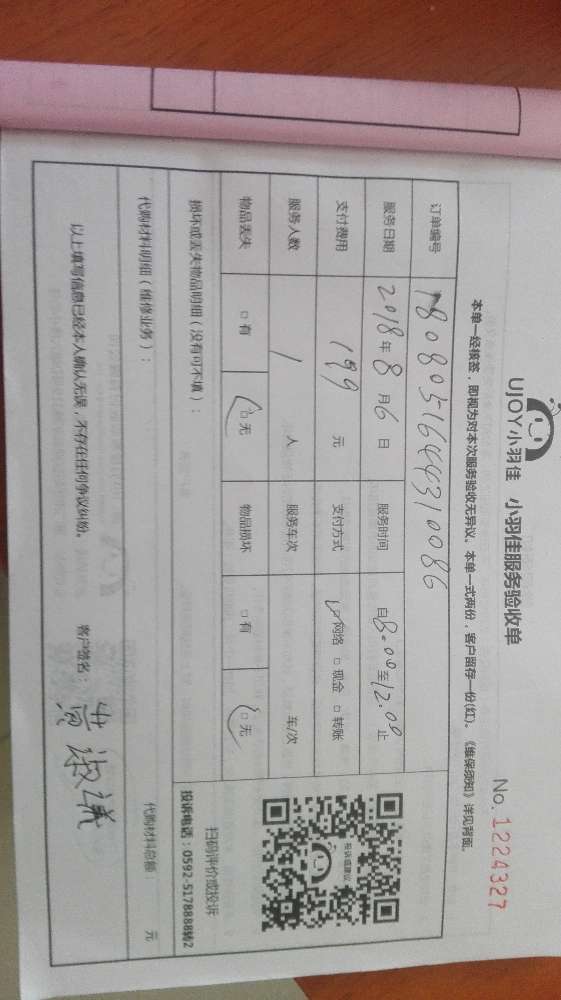 UJOY小羽佳 小羽佳服务验收单
No. 1224327
本单一经核签，即视为对本次服务验收无异议。本单一式两份，客户留存一份(红)。《维保须知》详见背面。
订单编号 1808051644310086
服务日期 2018年8月6日 服务时间 自8:00至12:00止
支付费用 199 元 支付方式 ☑网络 □现金 □转账
服务人数 1 人 服务车次 车/次
物品丢失 □有 ☑无 物品损坏 □有 ☑无
投诉或建议
扫码评价或投诉
投诉电话：0592-5178888转2
损坏或丢失物品明细（没有可不填）：
代购材料明细（维修业务）： 代购材料总额： 元
以上填写信息已经本人确认无误，不存在任何争议纠纷。 客户签名： 黄淑